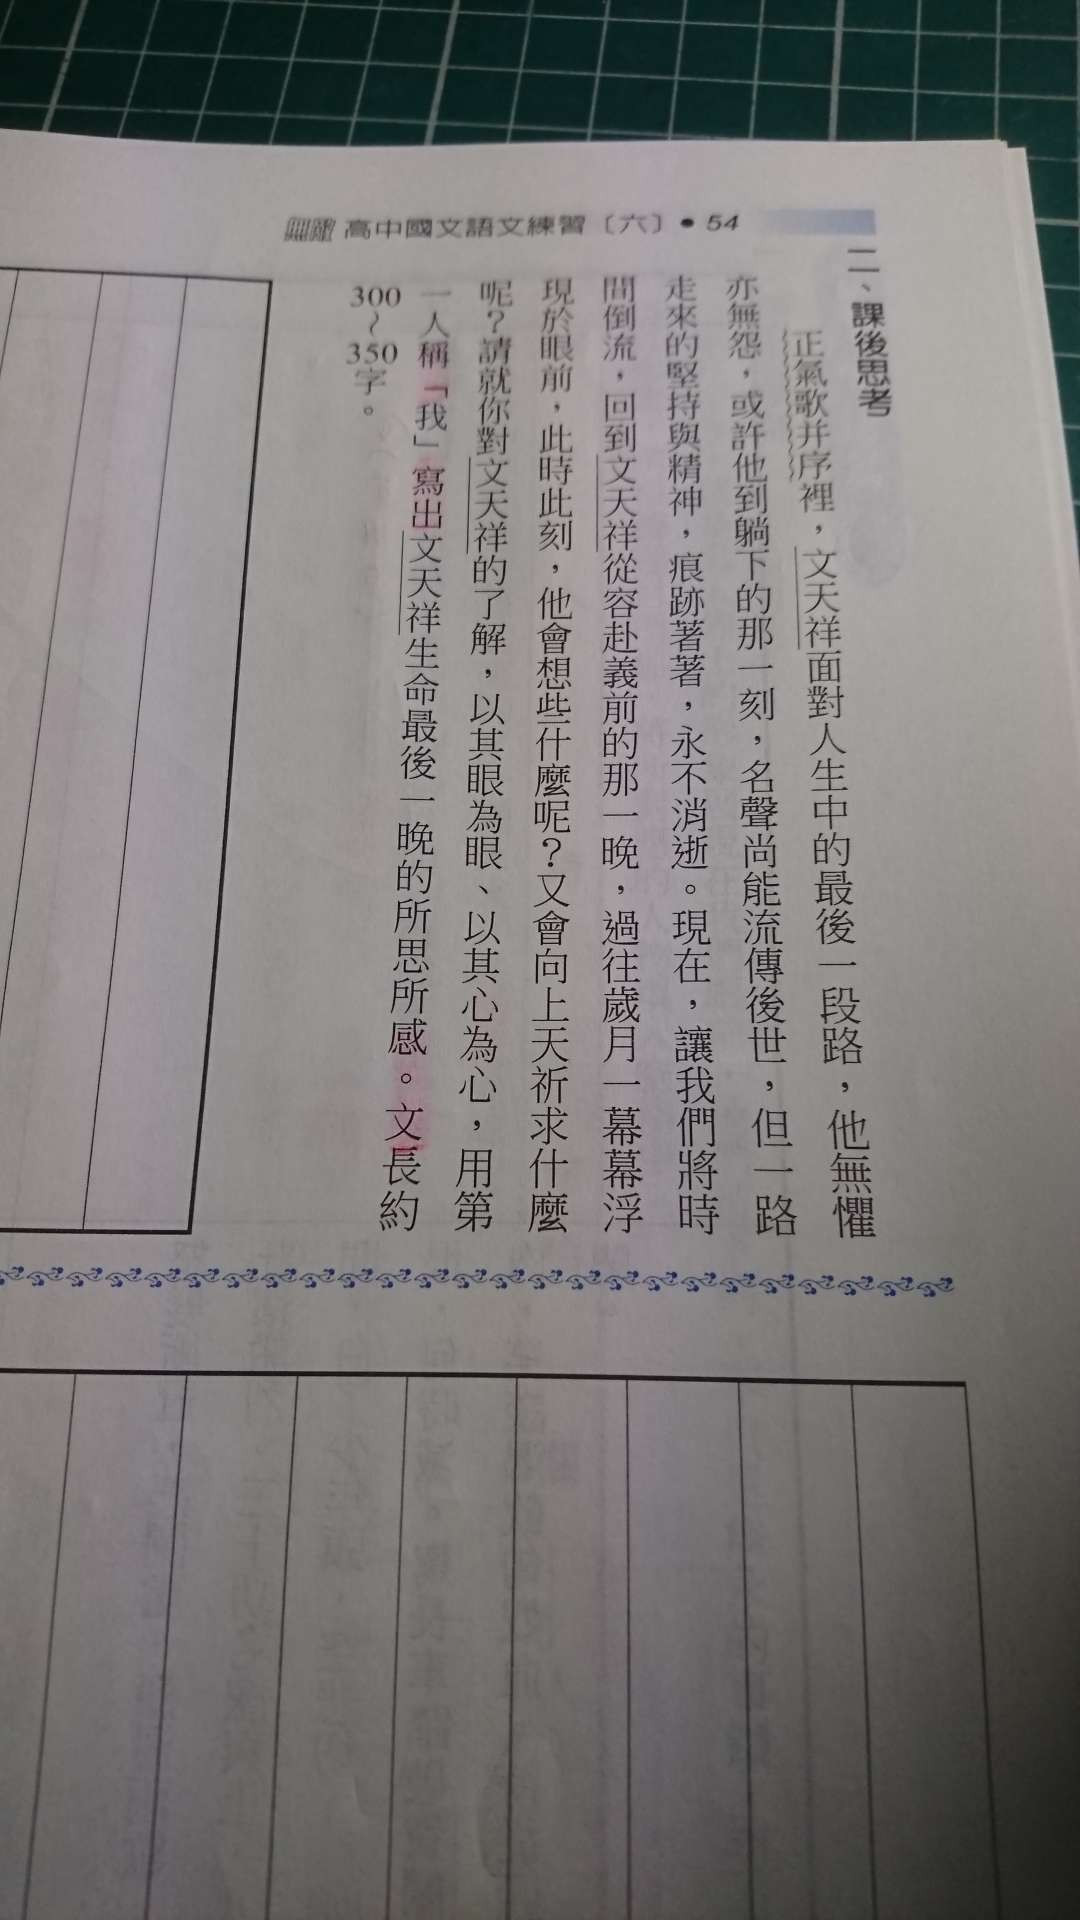 高中國文語文練習〔六〕●54
二、課後思考
正氣歌并序裡，文天祥面對人生中的最後一段路，他無懼
亦無怨，或許他到躺下的那一刻，名聲尚能流傳後世，但一路
走來的堅持與精神，痕跡著著，永不消逝。現在，讓我們將時
間倒流，回到文天祥從容赴義前的那一晚，過往歲月一幕幕浮
現於眼前，此時此刻，他會想些什麼呢？又會向上天祈求什麼
呢？請就你對文天祥的了解，以其眼為眼、以其心為心，用第
一人稱「我」寫出文天祥生命最後一晚的所思所感。文長約
300～350字。